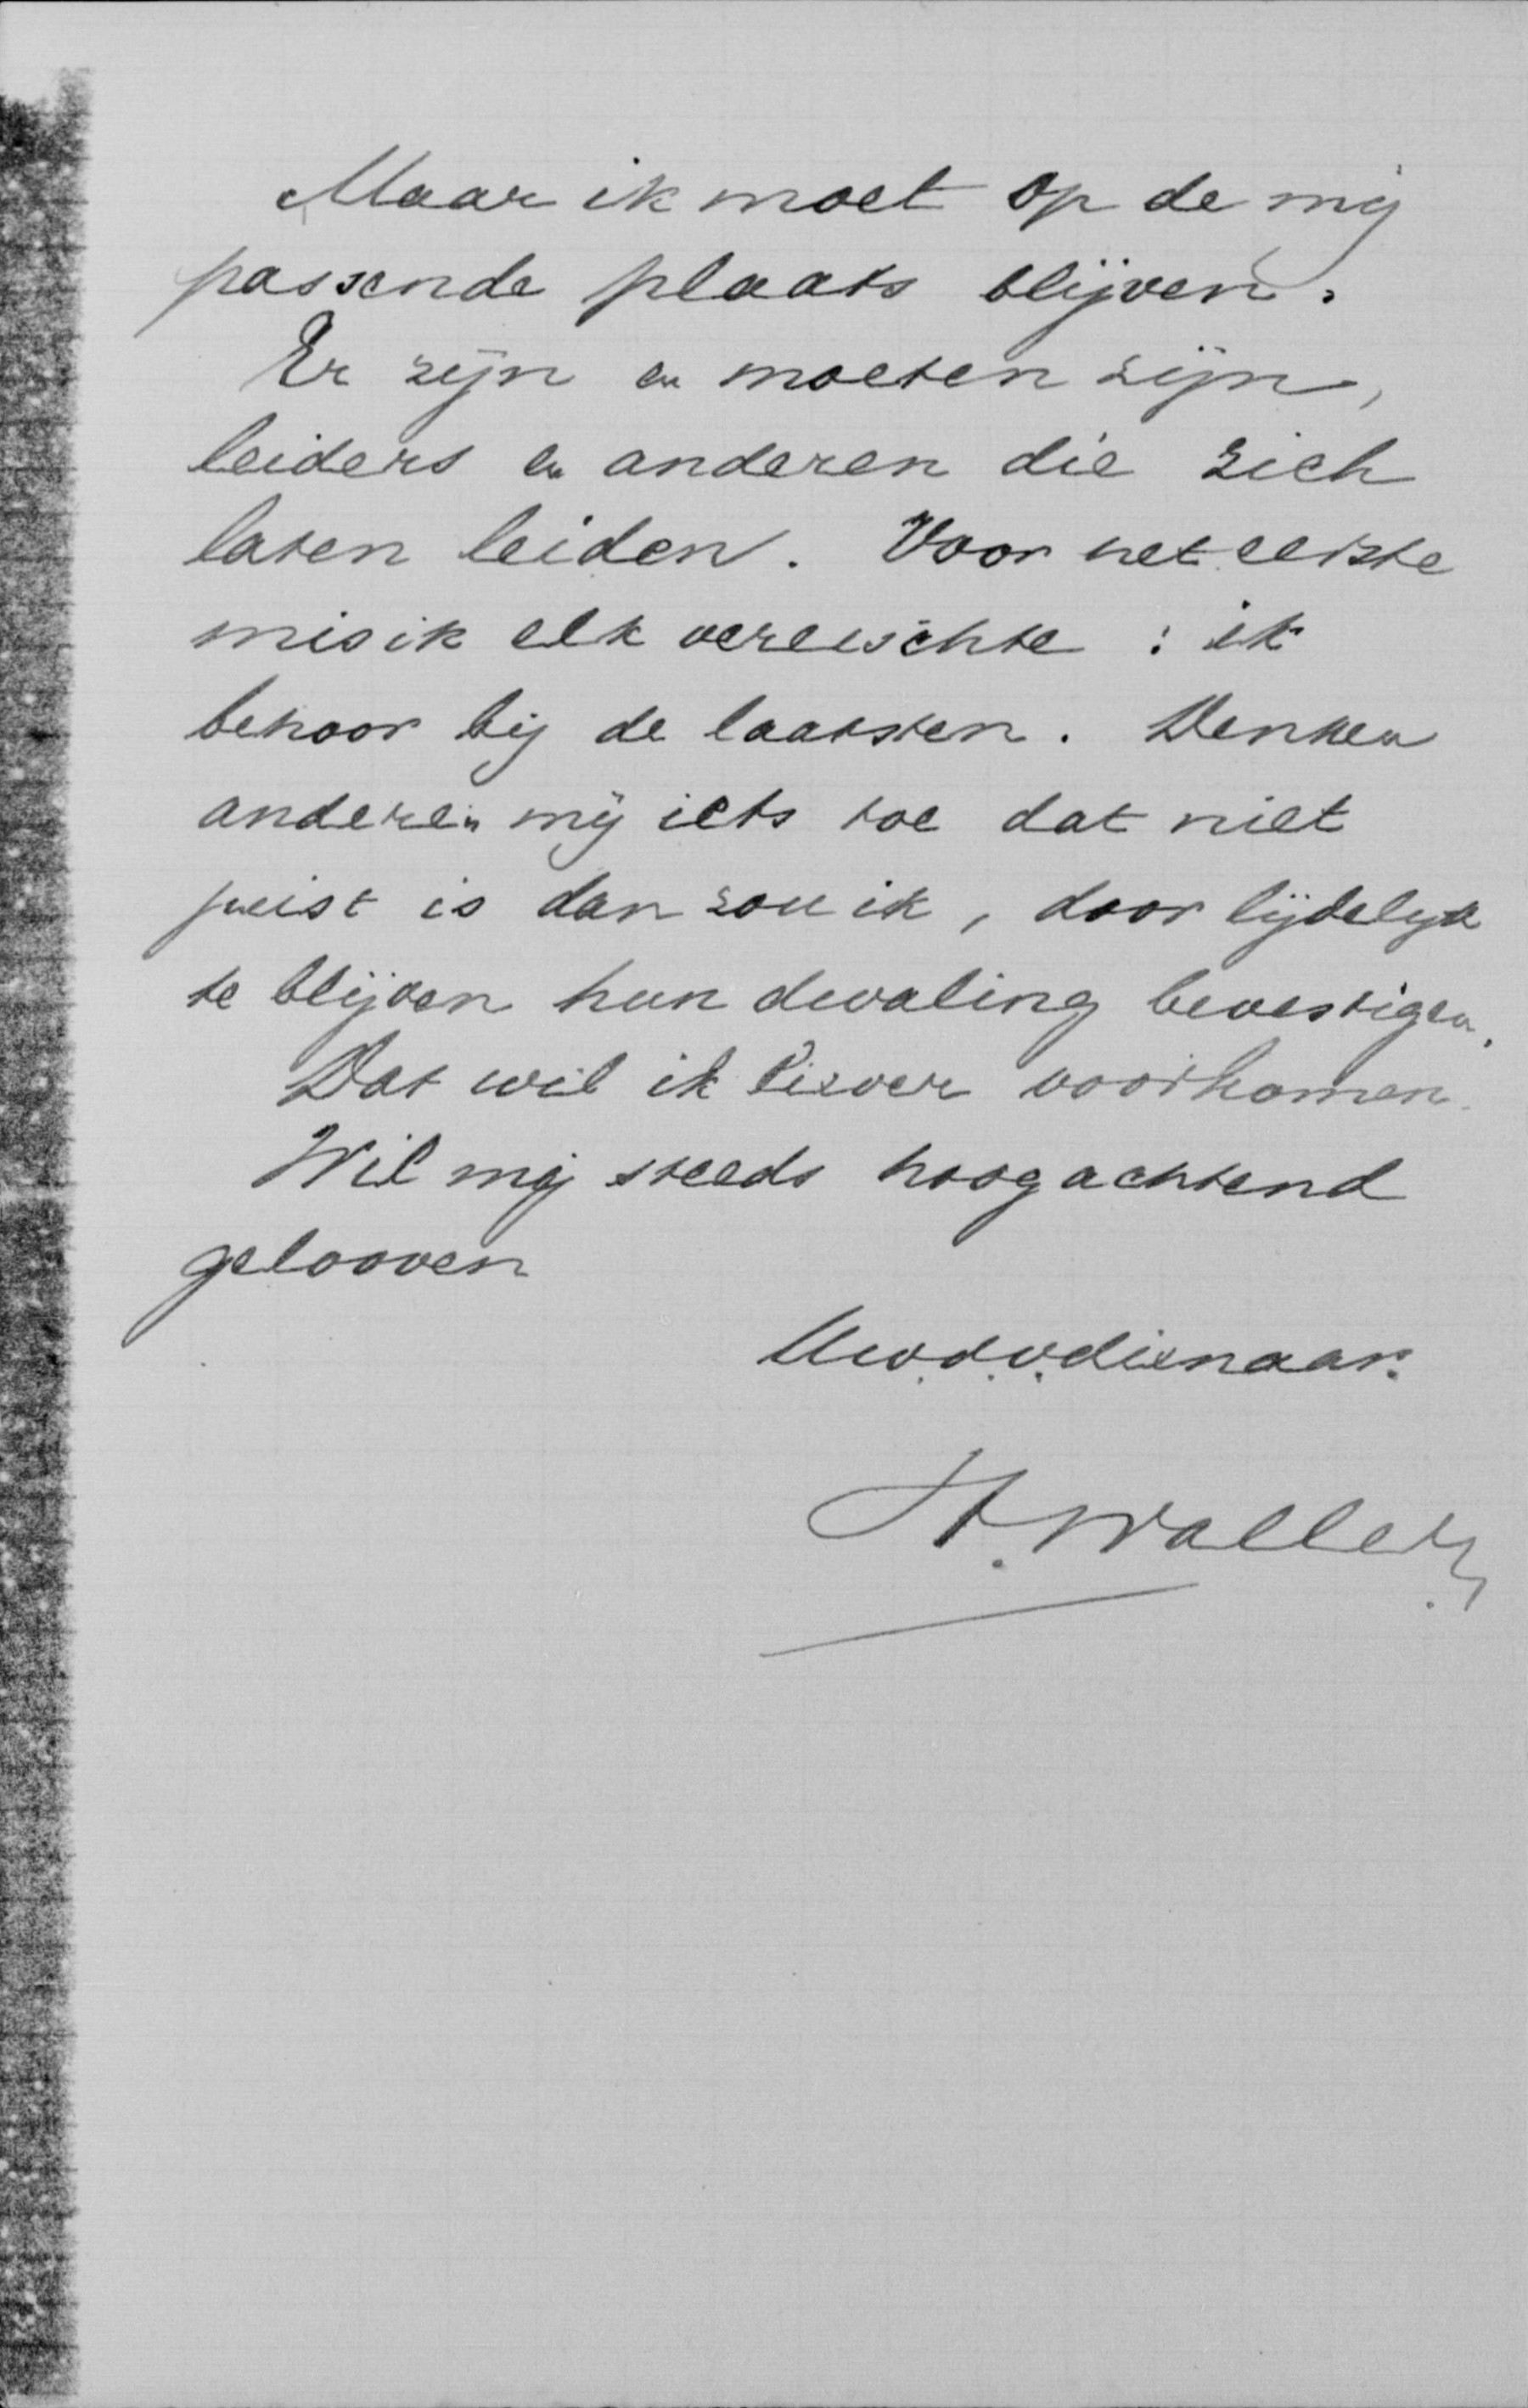 Maar ik moet op de mij
passende plaats blijven.
Er zijn en moeten zijn,
leiders en anderen die zich
laten leiden. Voor het eerste
mis ik elk vereischte : ik
behoor bij de laatsten. Denken
anderen mij iets toe dat niet
juist is dan zou ik, door lijdelijk
te blijven hun dwaling bevestigen.
Dat wil ik liever voorkomen.
Wil mij steeds hoogachtend
gelooven
Uw.d.v.dienaar.
H. Waller